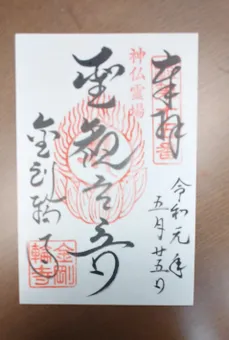 奉拝
令和元年
五月廿五日
神仏霊場
聖観世音
金剛輪寺
金剛
輪寺